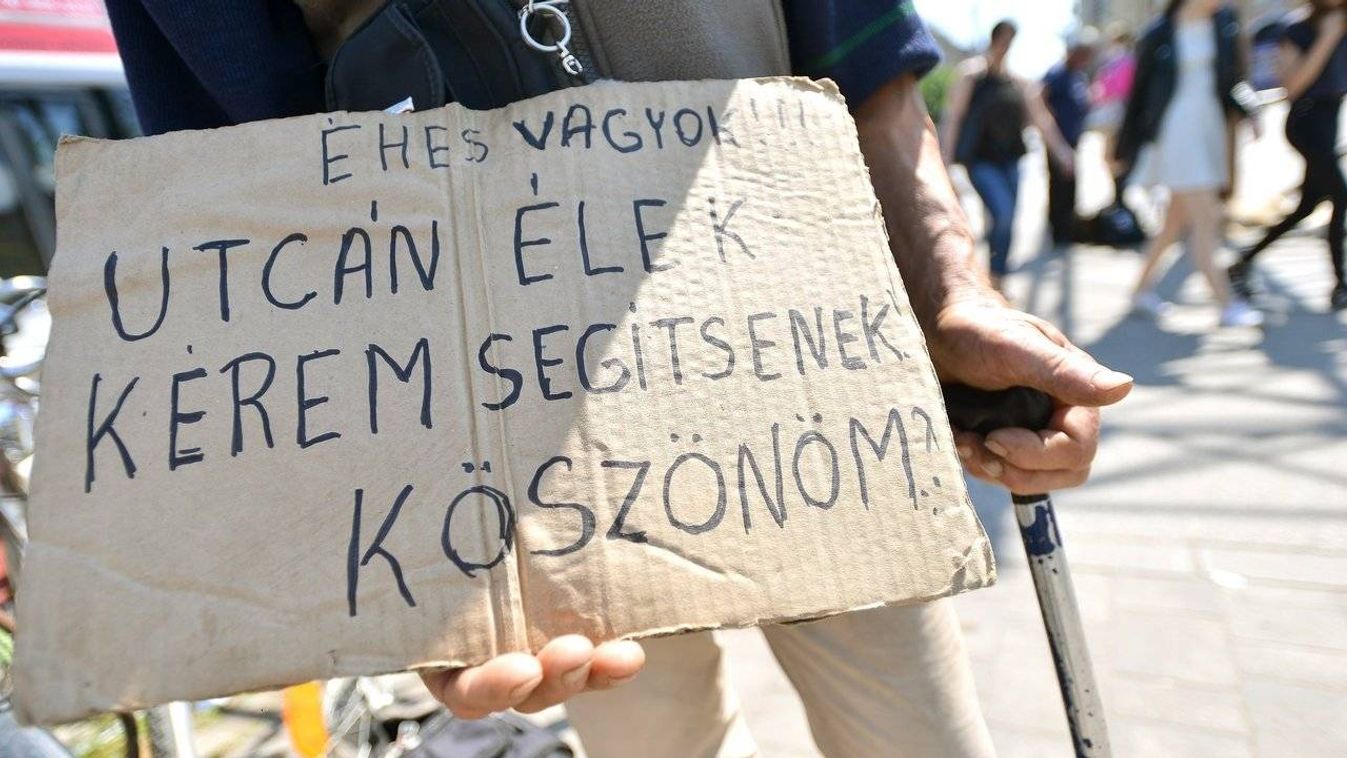 ÉHES VAGYOK!!!
UTCÁN ÉLEK
KÉREM SEGÍTSENEK!
KÖSZÖNÖM?